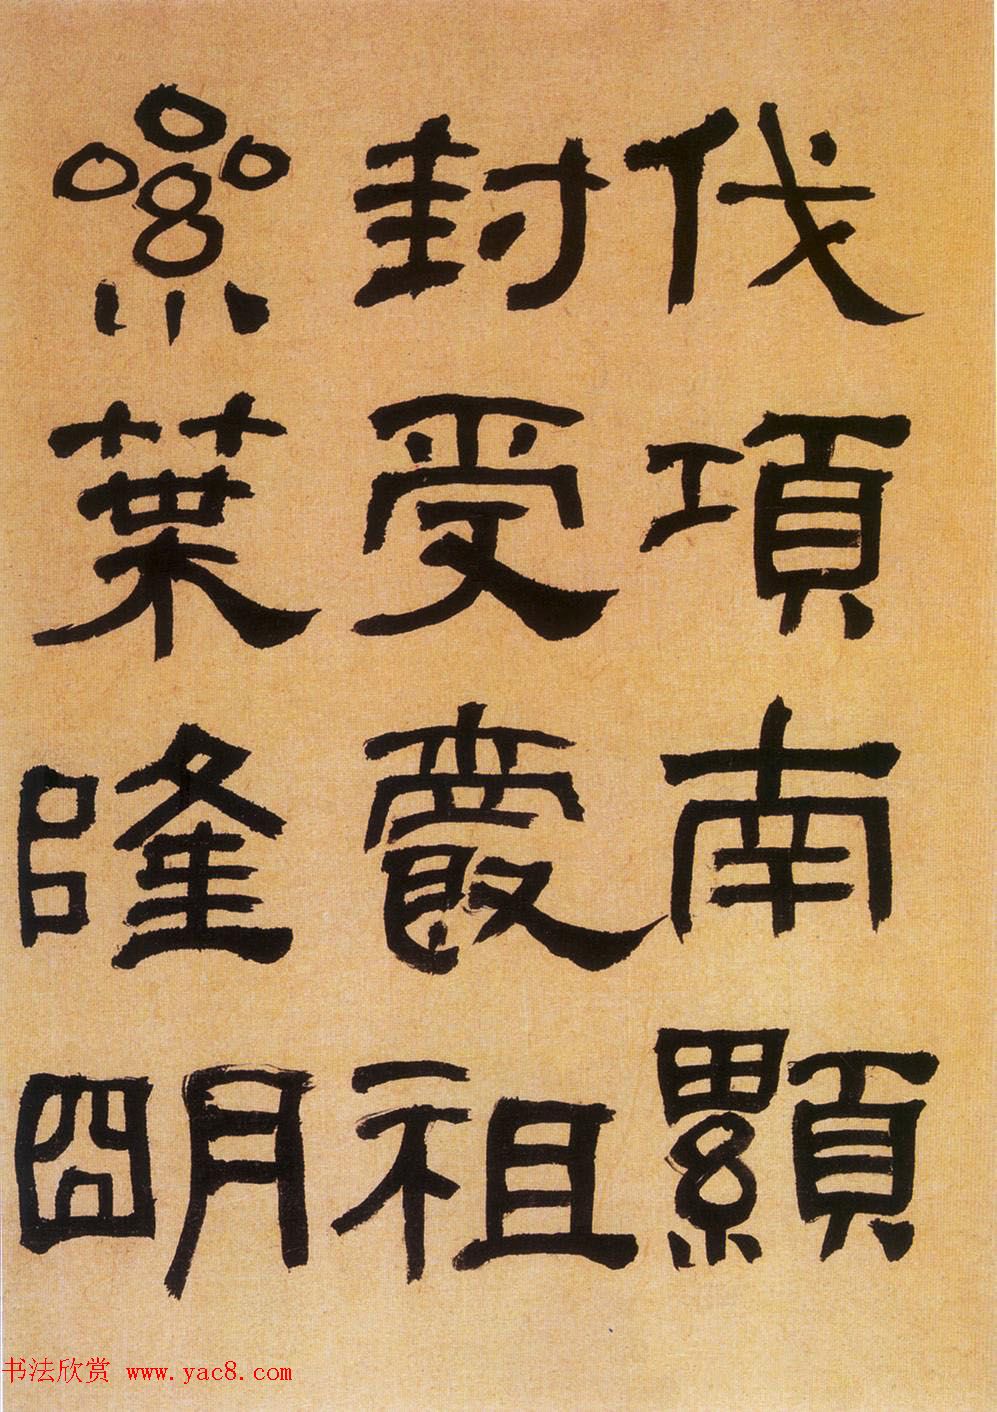 伐項南顯
封受慶祖
絫葉隆朙
书法欣赏 www.yac8.com